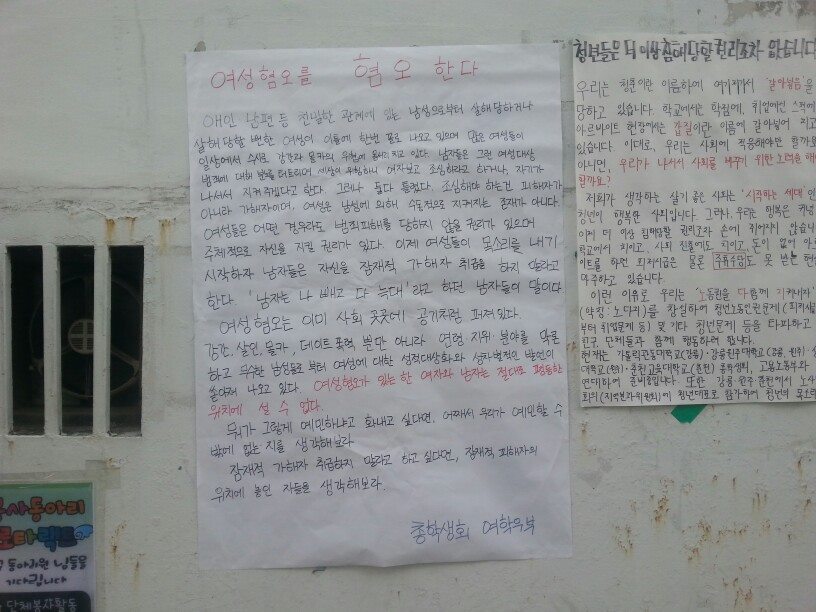 여성혐오를 혐오 한다
애인 남편 등 친밀한 관계에 있는 남성으로부터 살해당하거나
살해당할 뻔한 여성이 이틀에 한번 꼴로 나오고 있으며 많은 여성들이
일상에서 수시로 강간과 몰카의 위험에 놓여지고 있다. 남자들은 그런 여성대상
범죄에 대해 분을 터트리며 세상이 위험하니 여자보고 조심하라고 하거나, 자기가
나서서 지켜 주겠다고 한다. 그러나 둘다 틀렸다. 조심해야 하는건 피해자가
아니라 가해자이며, 여성은 남성에 의해 수동적으로 지켜지는 존재가 아니다.
여성들은 어떤 경우라도 범죄피해를 당하지 않을 권리가 있으며
주체적으로 자신을 지킬 권리가 있다. 이제 여성들이 목소리를 내기
시작하자 남자들은 자신을 잠재적 가해자 취급을 하지 말라고
한다. '남자는 나 빼고 다 늑대'라고 하던 남자들이 말이다.
여성 혐오는 이미 사회 곳곳에 공기처럼 퍼져 있다.
강간, 살인, 몰카, 데이트 폭력 뿐만 아니라 연령·지위·분야를 막론
하고 무수한 남성들로부터 여성에 대한 성적대상화와 성차별적인 발언이
쏟아져 나오고 있다. 여성혐오가 있는 한 여자와 남자는 절대로 평등한
위치에 설 수 없다.
뭐가 그렇게 예민하냐고 화내고 싶다면, 어째서 우리가 예민할 수
밖에 없는 지를 생각해보라
잠재적 가해자 취급하지 말라고 하고 싶다면, 잠재적 피해자의
위치에 놓인 자들을 생각해보라.
총학생회 여학우부
청년들은 더 이상 춤에당할 권리조차 없습니다
우리는 청춘이란 이름하에 여기저기서 '갈아넣음'을
당하고 있습니다. 학교에서는 학점에, 취업에선 스펙에
아르바이트 현장에서는 갑질이란 이름에 갈아넣어 지고
있습니다. 이대로, 우리는 사회에 적응해야만 할까요
아니면, 우리가 나서서 사회를 바꾸기 위한 노력을 해야
할까요?
저희가 생각하는 살기 좋은 사회는 '시작하는 세대'인
청년이 행복한 사회입니다. 그러나, 우리는 행복은 커녕
이제 더 이상 침해당할 권리조차 손에 쥐어지지 않습니
학교에서 치이고, 사회 진출에도 치이고, 돈이 없어 아르
이트를 하면 최저시급은 물론 주휴수당도 못 받는 현
마주하고 있습니다.
이런 이유로 우리는 '노동권을 다함께 지켜내자'
(약칭: 노다지)를 창설하여 청년노동인권문제(최저시급
부터 취업문제 등) 및 기타 청년문제 등을 타파하고
친구 단체들과 함께 행동하려 합니다.
현재는 가톨릭관동대학교(강릉)·강릉원주대학교(강릉, 원주)
연대하여 준비중입니다. 또한 강릉·원주·춘천에서 노사
봉사동아리
로타랙트
동아리원 님들을
기다립니다
단체봉사활동